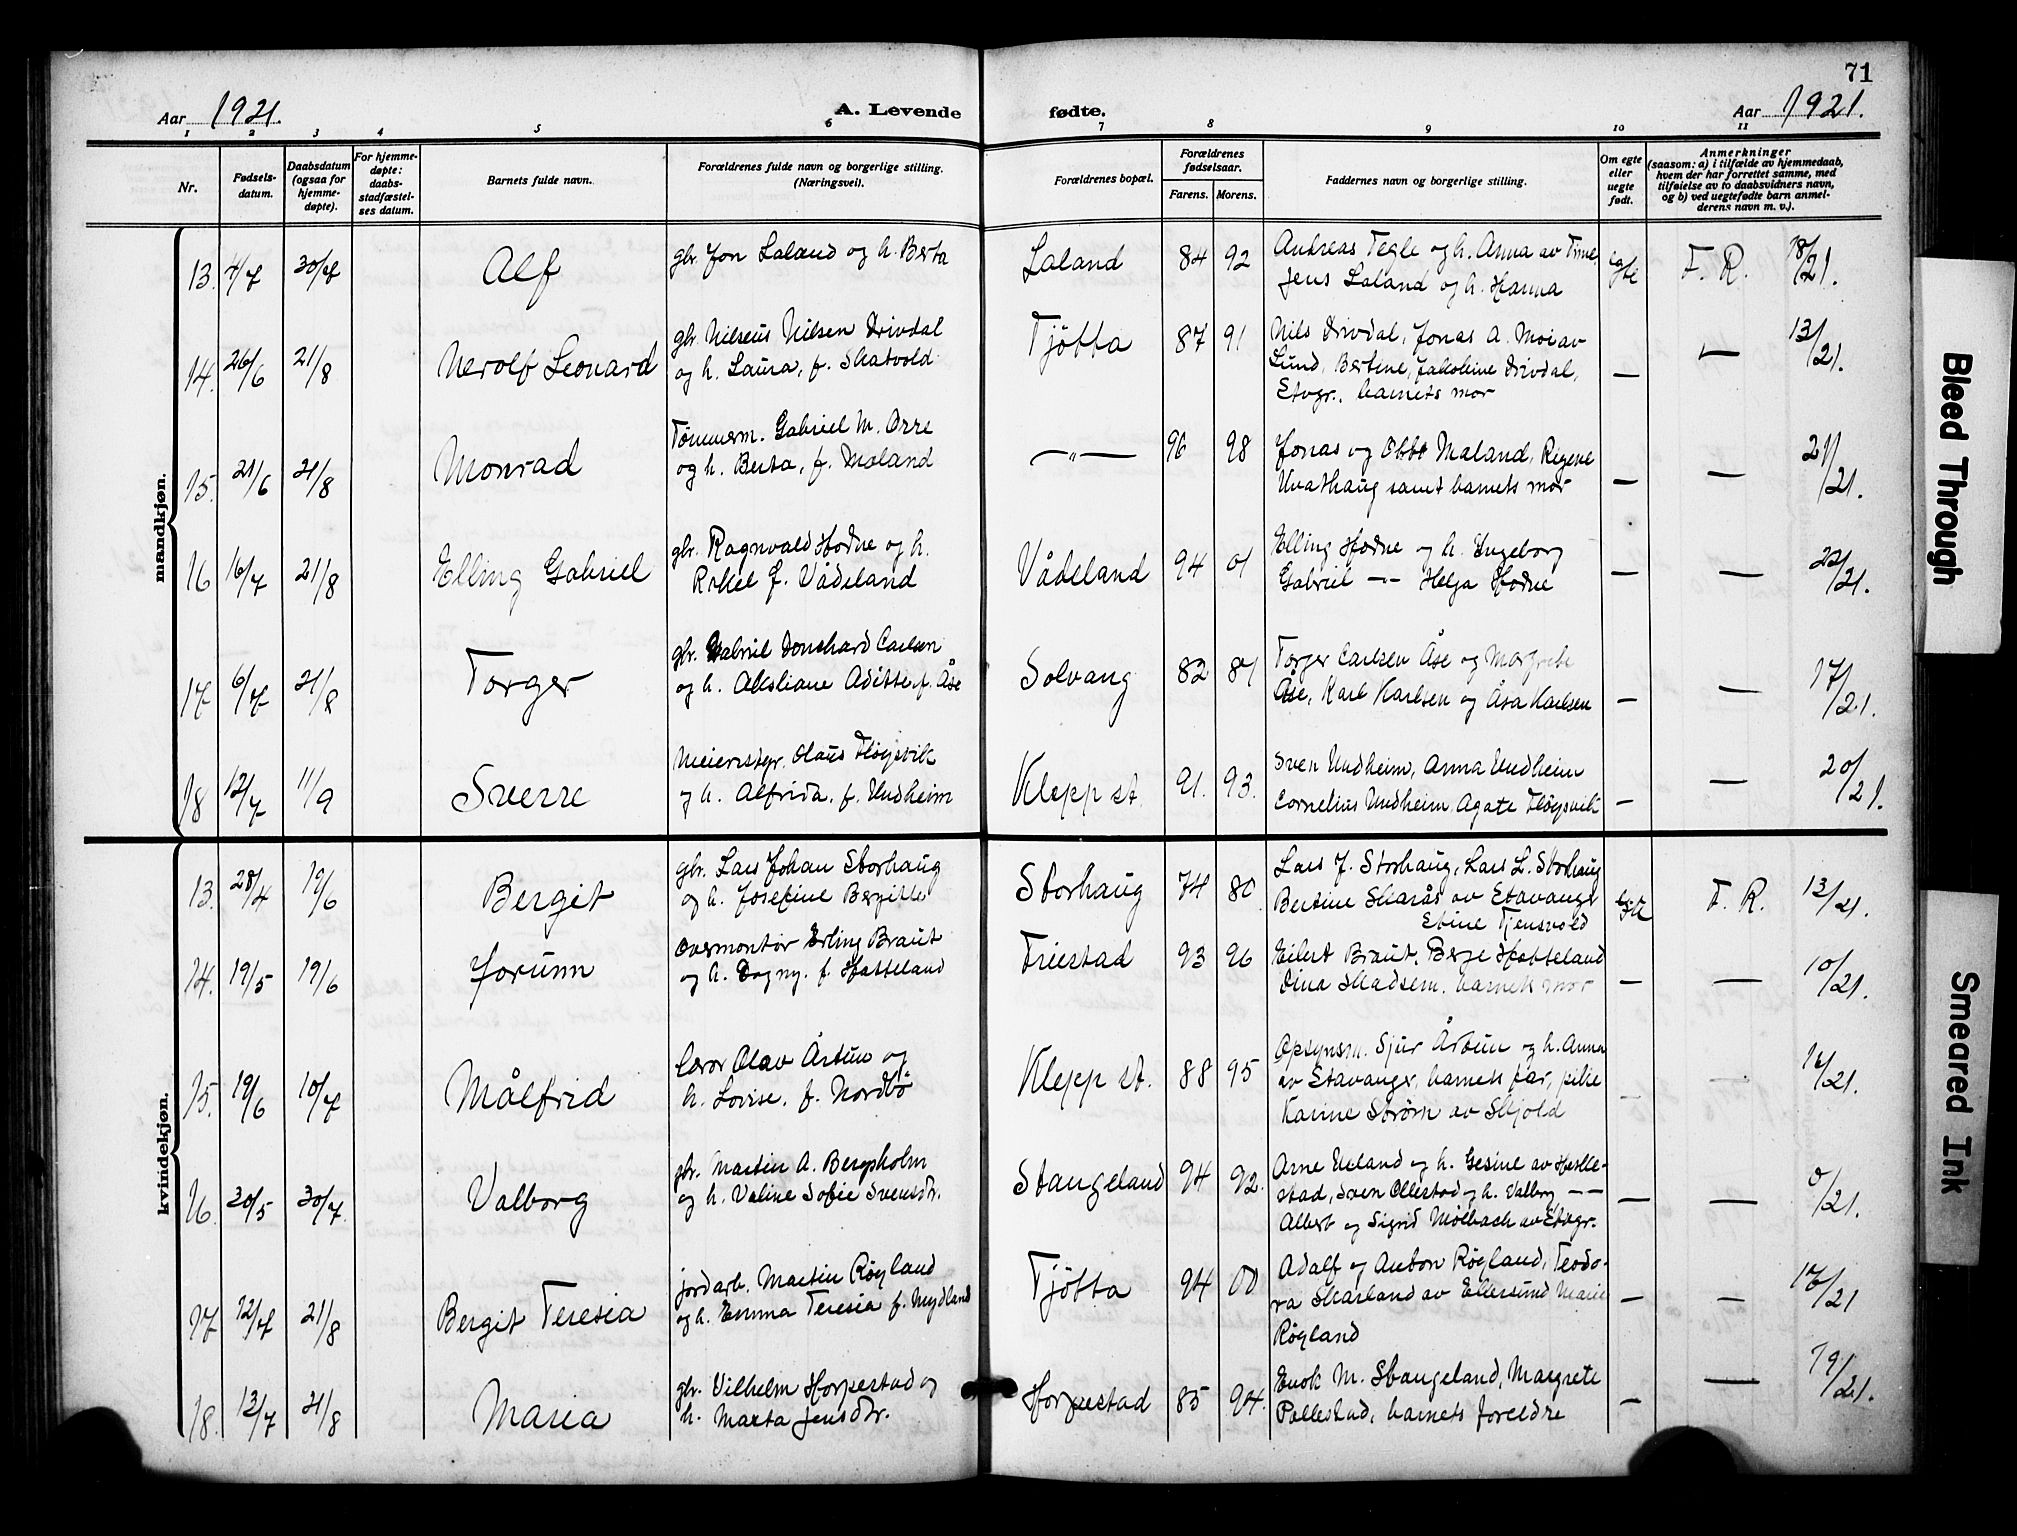 71
Aar 1921.
A. Levende
fødte.
Aar 1921.
1 2 3 4 5 6 7 8 9 10 11
Nr.
Fødsels-
datum.
Daabsdatum
(ogsaa for
hjemme-
døpte).
For hjemme-
døpte:
daabs-
stadfæstel-
ses datum.
Barnets fulde navn.
Forældrenes fulde navn og borgerlige stilling.
(Næringsvei).
Forældrenes bopæl.
Forældrenes
fødselsaar.
Farens. Morens.
Faddernes navn og borgerlige stilling.
Om egte
eller
uegte
født.
Anmerkninger
(saasom: a) i tilfælde av hjemmedaab,
hvem der har forrettet samme, med
tilføielse av to daabsvidners navn,
og b) ved uegtefødte barn anmel-
derens navn m. v.).
mandkjøn.
13. 4/7 30/7
Alf
gbr. Jon Laland og h. Berta
Laland 84 92
Andreas Tegle og h. Anna av Time
Jens Laland og h. Hanna
egte F. R. 18/21.
14. 26/6 21/8
Nerolf Leonard
gbr. Nilseus Nilsen Drivdal
og h. Laura, f. Skatvold
Tjøtta 87 91
Nils Drivdal, Jonas A. Moi av
Lund, Bertine, Jakobine Drivdal,
Stvgr., barnets mor
— — 13/21.
15. 21/6 21/8
Monrad
Tømmerm. Gabriel M. Orre
og h. Berta, f. Maland
—"— 96 98
Jonas og Maland, Regine
samt barnets mor
— — 21/21.
16 16/7 21/8
Elling Gabriel
gbr. Ragnvald Hodne og h.
Rakel f. Vådeland
Vådeland 94 01
Elling Hodne og h. Ingeborg
Gabriel —"— Helga Hodne
— — 22/21.
17 6/7 21/8
Torger
gbr. Gabriel Donchard Carlsen
og h. Aksliane Aditte, f. Åse
Solvang 82 87
Torger Carlsen Åse og Margrete
Åse, Karl Karlsen og Åsa Karlsen
— — 17/21.
18 12/7 11/9
Sverre
Meieristyr. Olaus Fløysvik
og h. Alfrida. f. Undheim
Klepp st. 91. 93.
Sven Undheim, Anna Undheim
Cornelius Undheim, Agate Fløysvik
— — 20/21.
kvindekjøn.
13. 28/4 19/6
Bergit
gbr. Lars Johan Storhaug
og h. Josefine Bergitte
Storhaug 74 80
Lars J. Storhaug, Lars L. Storhaug
Bertine Skarås av Stavanger
Stine Tjensvold
egte F. R. 13/21.
14. 19/5 19/6
Jorunn
Overmontør Erling Braut
og h. Dagny. f. Hatteland
Friestad 93 96
Eilert Braut, Berge Hatteland
Dina Madsem, barnets mor
— — 10/21.
15. 19/6 10/7
Målfrid
lærer Olav Årtun og
h. Lovise, f. Nordbø
Klepp st. 88 95
Opsynsm. Sjur Årtun og h. Anna
av Stavanger, barnets far, pike
Karine Strøm av Skjold
— — 16/21.
16. 30/5 30/7.
Valborg
gbr. Martin A. Bergsholm
og h. Valine Sofie Svensdr.
Stangeland 94 92.
Arne Ueland og h. Gesine av
stad, Sven Ollestad og h. Valborg —"—
Albert og Sigrid Mølbach av Stvgr.
— — /21.
17 12/7 21/8
Bergit Teresia
jordarb. Martin Røyland
og h. Emma Teresia f. Mydland
Tjøtta 94 00
Adolf og Anton Røyland, Teodo-
ra Skarland av Ekersund Marie
Røyland
— — 16/21
18. 13/7 21/8
Maria
gbr. Vilhelm Horpestad og
h. Marta Jensdtr.
Horpestad 85 94.
Enok M. Stangeland, Margrete
Pollestad, barnets foreldre
— — 19/21.
Bleed Through
Smeared Ink